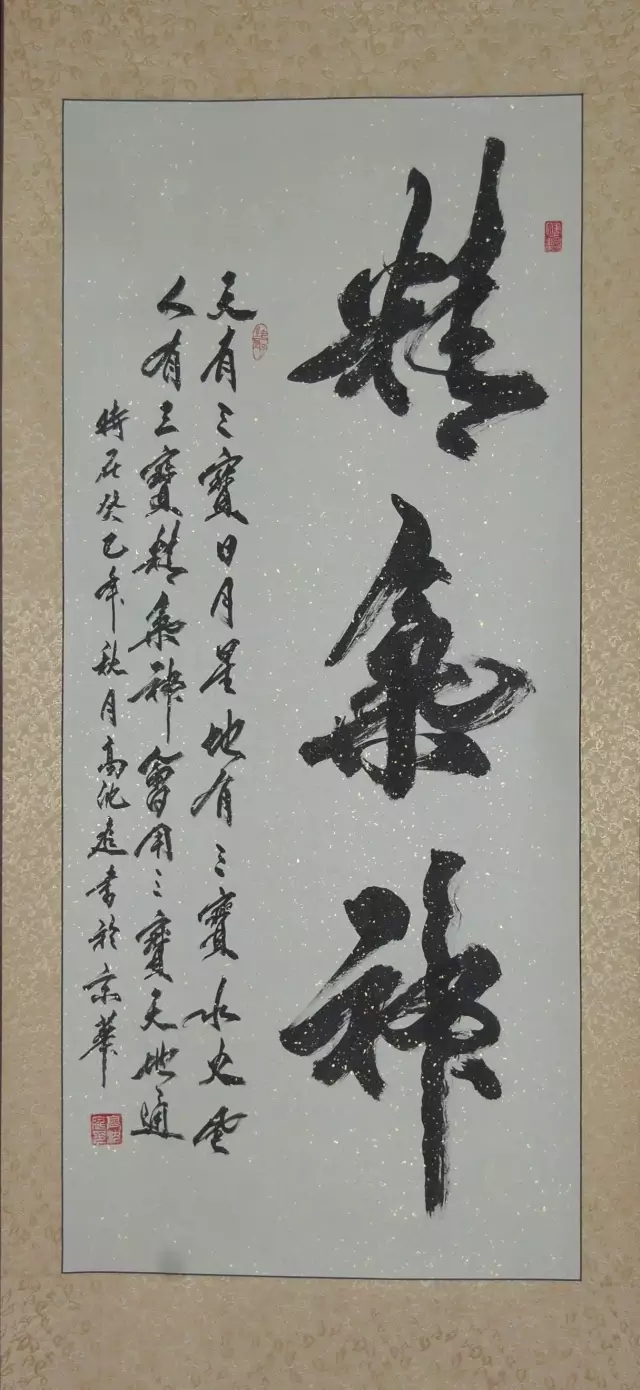 精氣神
天有三寶日月星地有三寶水火
人有三寶精氣神會用三寶天地通
時在癸巳年秋月高書於京華